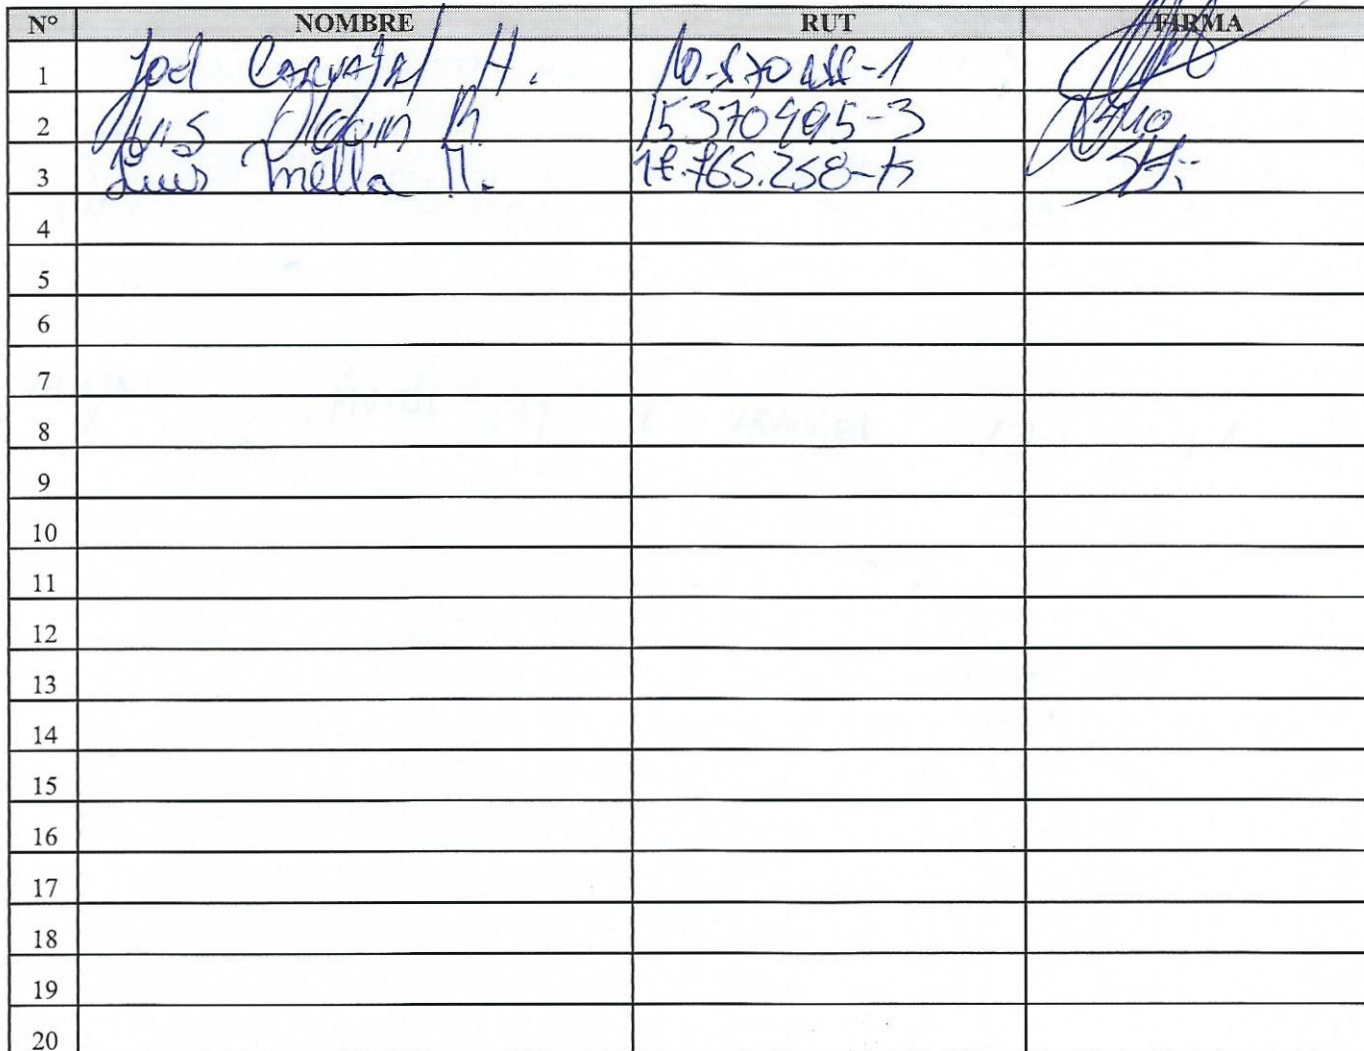 N° NOMBRE RUT FIRMA
1 Joel Carvajal H.
2 Luis 15370995-3
3 Luis Mella M. 765.258-K
4
5
6
7
8
9
10
11
12
13
14
15
16
17
18
19
20